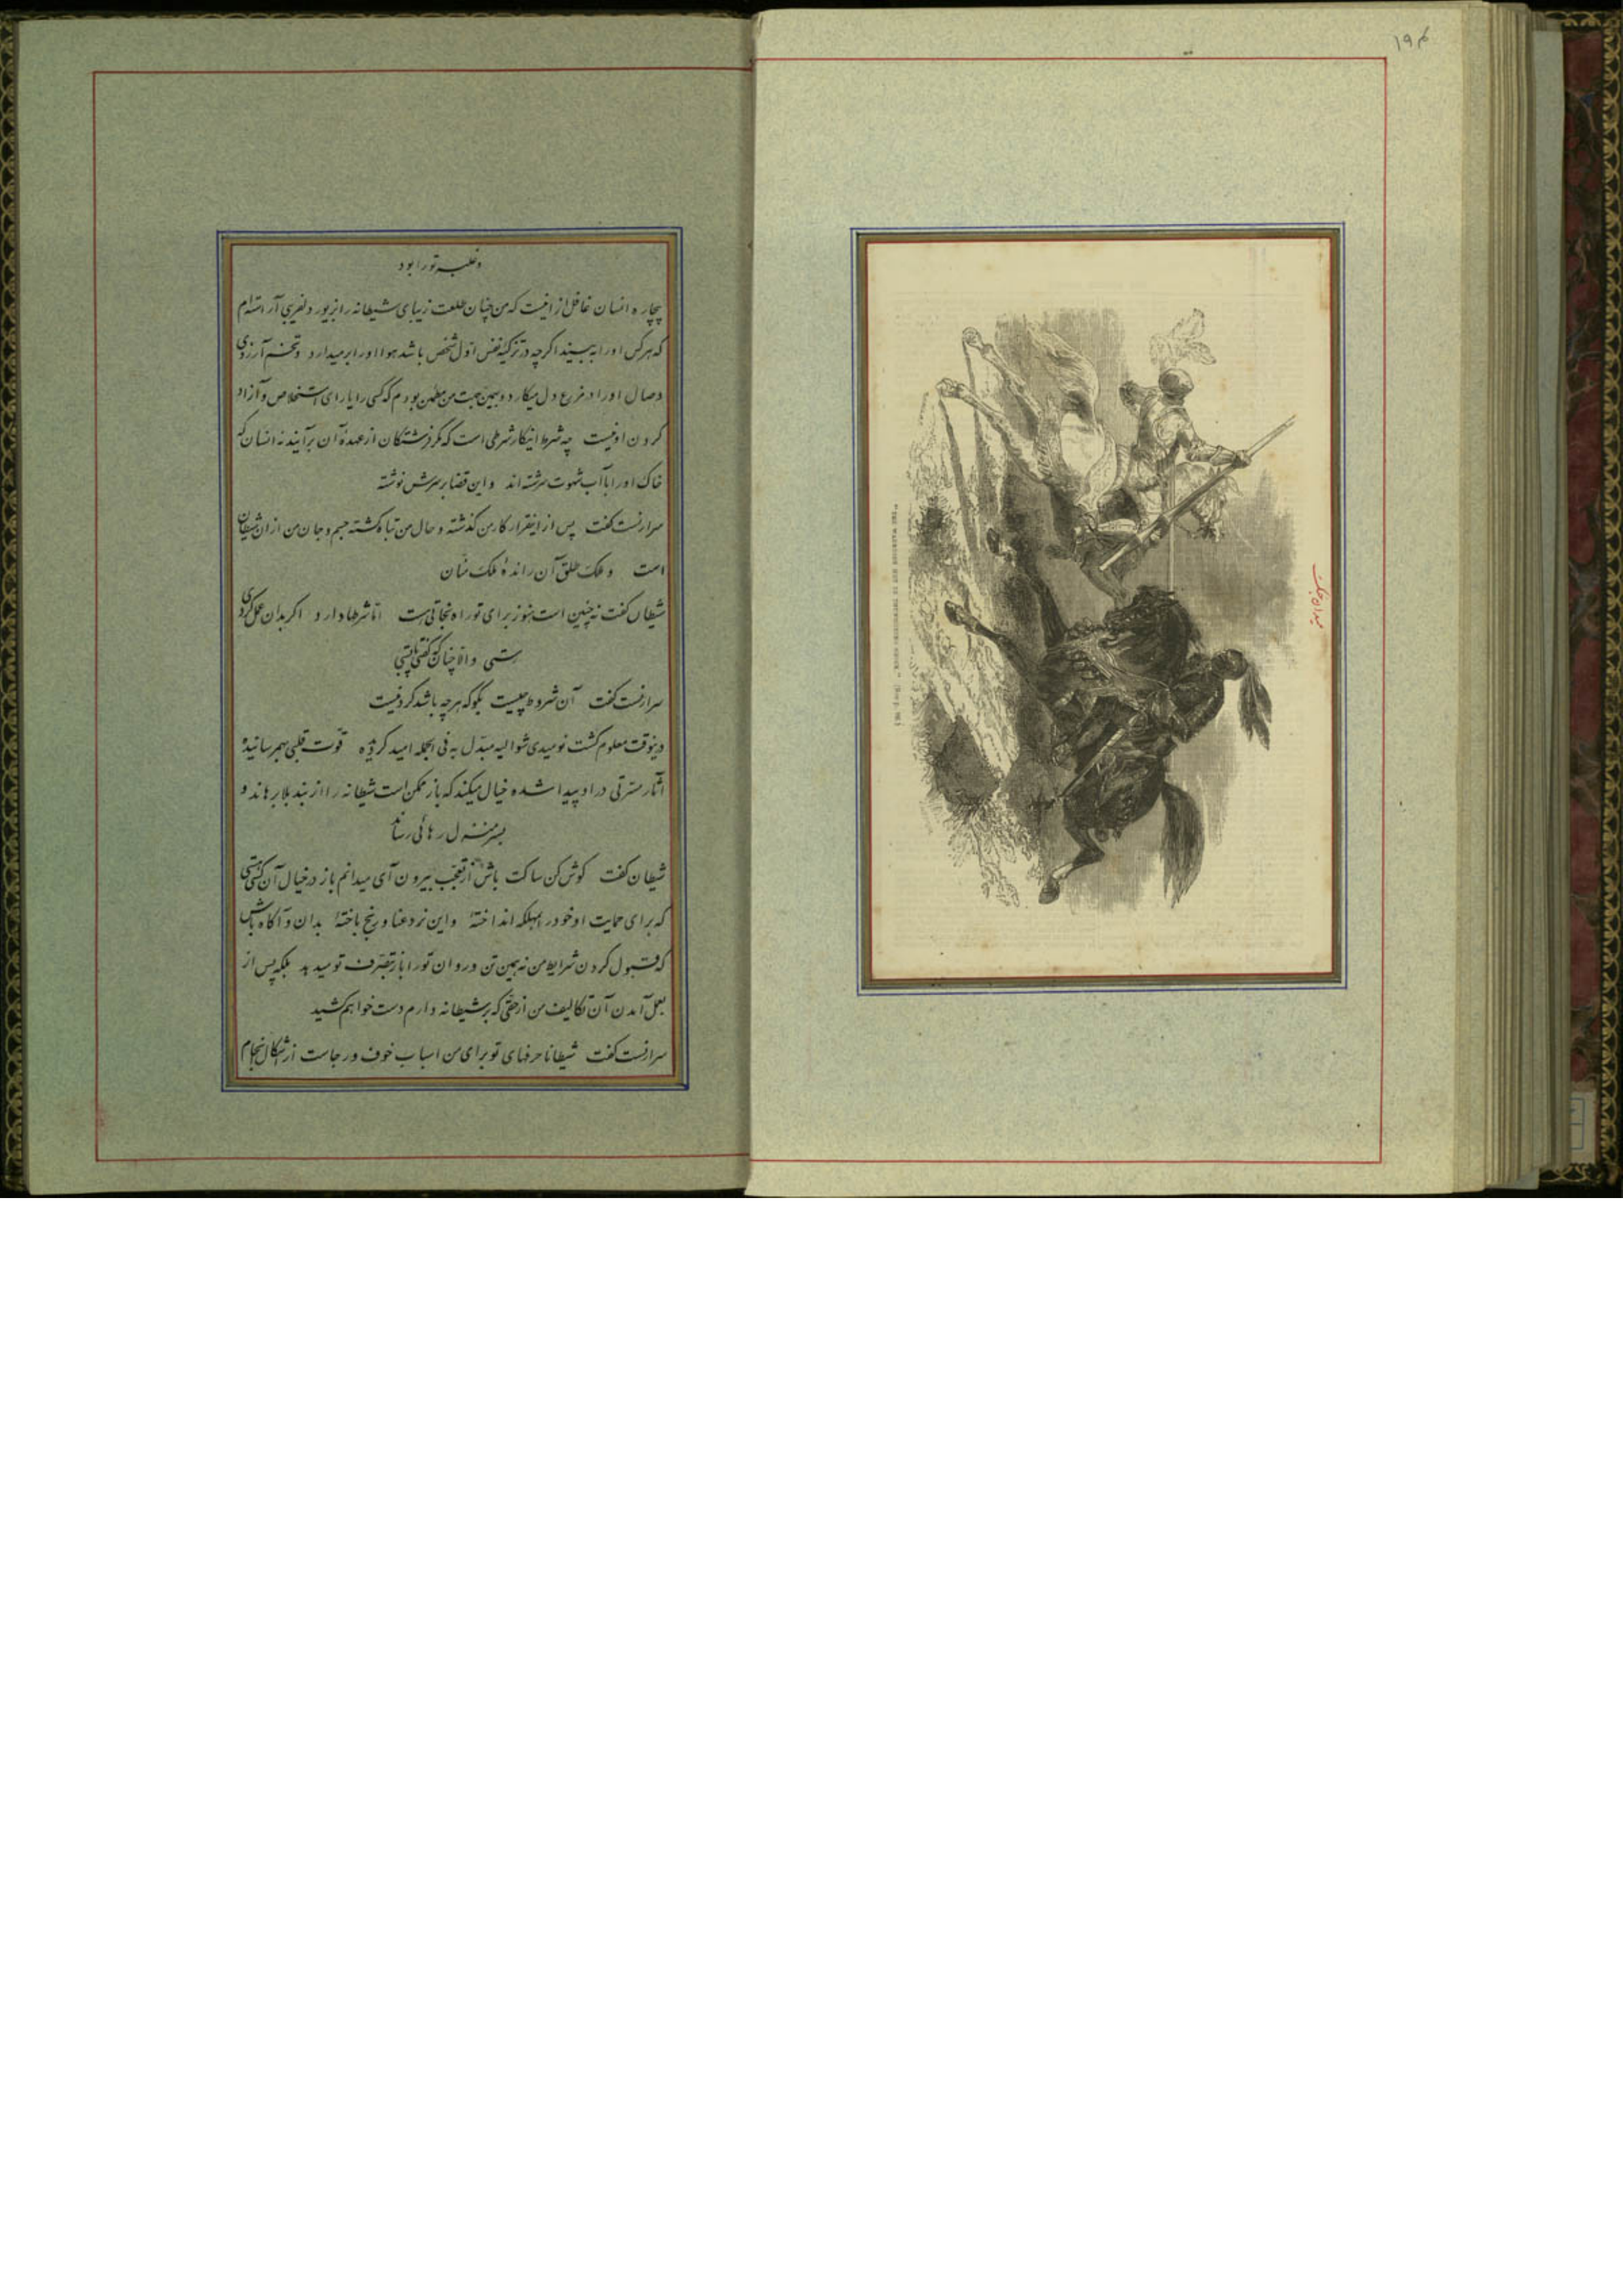 ۱۹۴
میدان جنگ
و غلبه تو را بود
بیچاره انسان غافل از اینست که من چنان طلعت زیبای شیطانه را بزیور دلفریبی آراسته‌ام
که هرکس او را به بیند اگرچه در تزکیه نفس اول شخص باشد هوا او را برمیدارد و تخم آرزوی
وصال او را در مزرع دل میکارد و بهمین جهت من مطمئن بودم که کسی را یارای استخلاص و آزاد
کردن او نیست چه شرط اینکار شرطی است که مگر فرشتگان از عهده آن برآیند نه انسان که
خاک او را با آب شهوت سرشته‌اند و این قضا بر سرش نوشته
سرارنست گفت پس از اینقرار کار من گذشته و حال من تباه گشته جسم و جان من از ان شیطان
است و ملک طلق آن رانده ملک منان
شیطان گفت نه چنین است هنوز برای تو راه نجاتی هست اما شرطها دارد اگر بدان عمل کردی
رستی و الا چنان که گفتی
سرارنست گفت آن شروط چیست بگو که هرچه باشد کردنیست
درینوقت معلوم گشت نومیدی شوالیه مبدل به فی الجمله امید گردیده قوت قلبی بهم رسانیده
آثار مسرتی در او پیدا شده خیال میکند که باز ممکن است شیطانه را از بند بلا برهاند و
بسرمنزل رهائی رساند
شیطان گفت گوش کن ساکت باش از تعجب بیرون آی میدانم باز در خیال آن کسی هستی
که برای حمایت او خود در مهلکه انداختهٔ و این نرد عنا و رنج باختهٔ بدان و آگاه باش
که قبول کردن شرایط من نه همین تن و روان تو را باز بتصرف تو میدهد بلکه پس از
بعمل آمدن آن تکالیف من از حقی که بر شیطانه دارم دست خواهم کشید
سرارنست گفت شیطانا حرفهای تو برای من اسباب خوف و رجاست از اشکال انجام